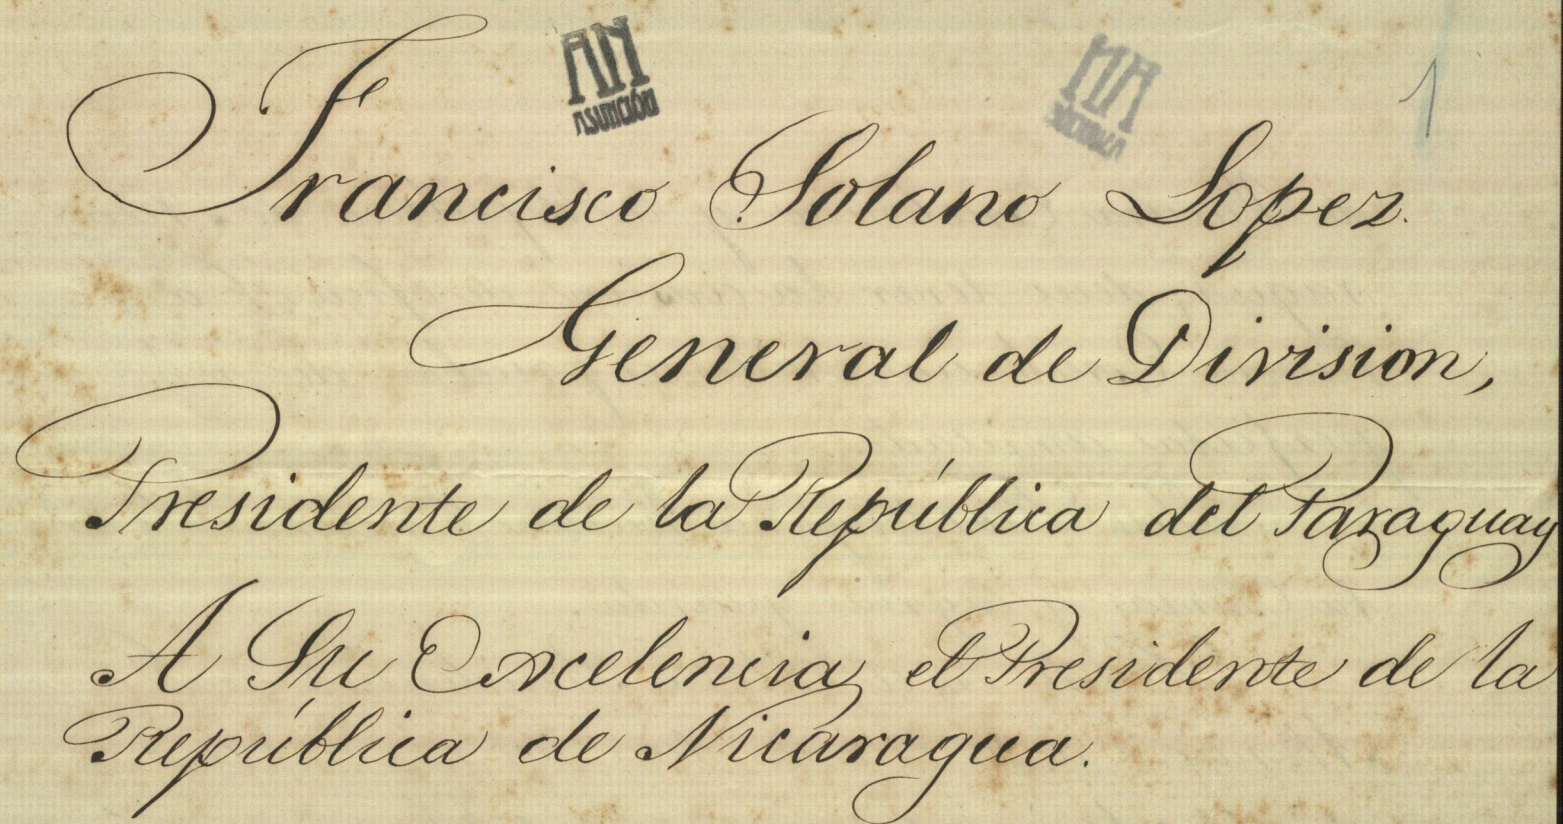 AN
ASUNCIÓN
1
Francisco Solano Lopez.
General de Division,
Presidente de la República del Paraguay
A Su Excelencia, el Presidente de la
República de Nicaragua.